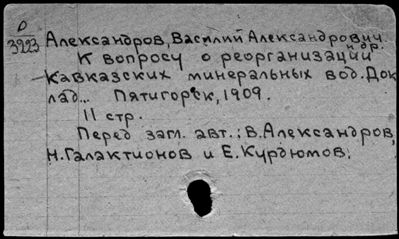 О
3223
Александров, Василий Александрович
и др.
К вопросу о реорганизации
Кавказских минеральных вод. Док
лад... Пятигорск, 1909.
11 стр.
Перед загл. авт.: В. Александров,
Н. Галактионов и Е. Курдюмов.